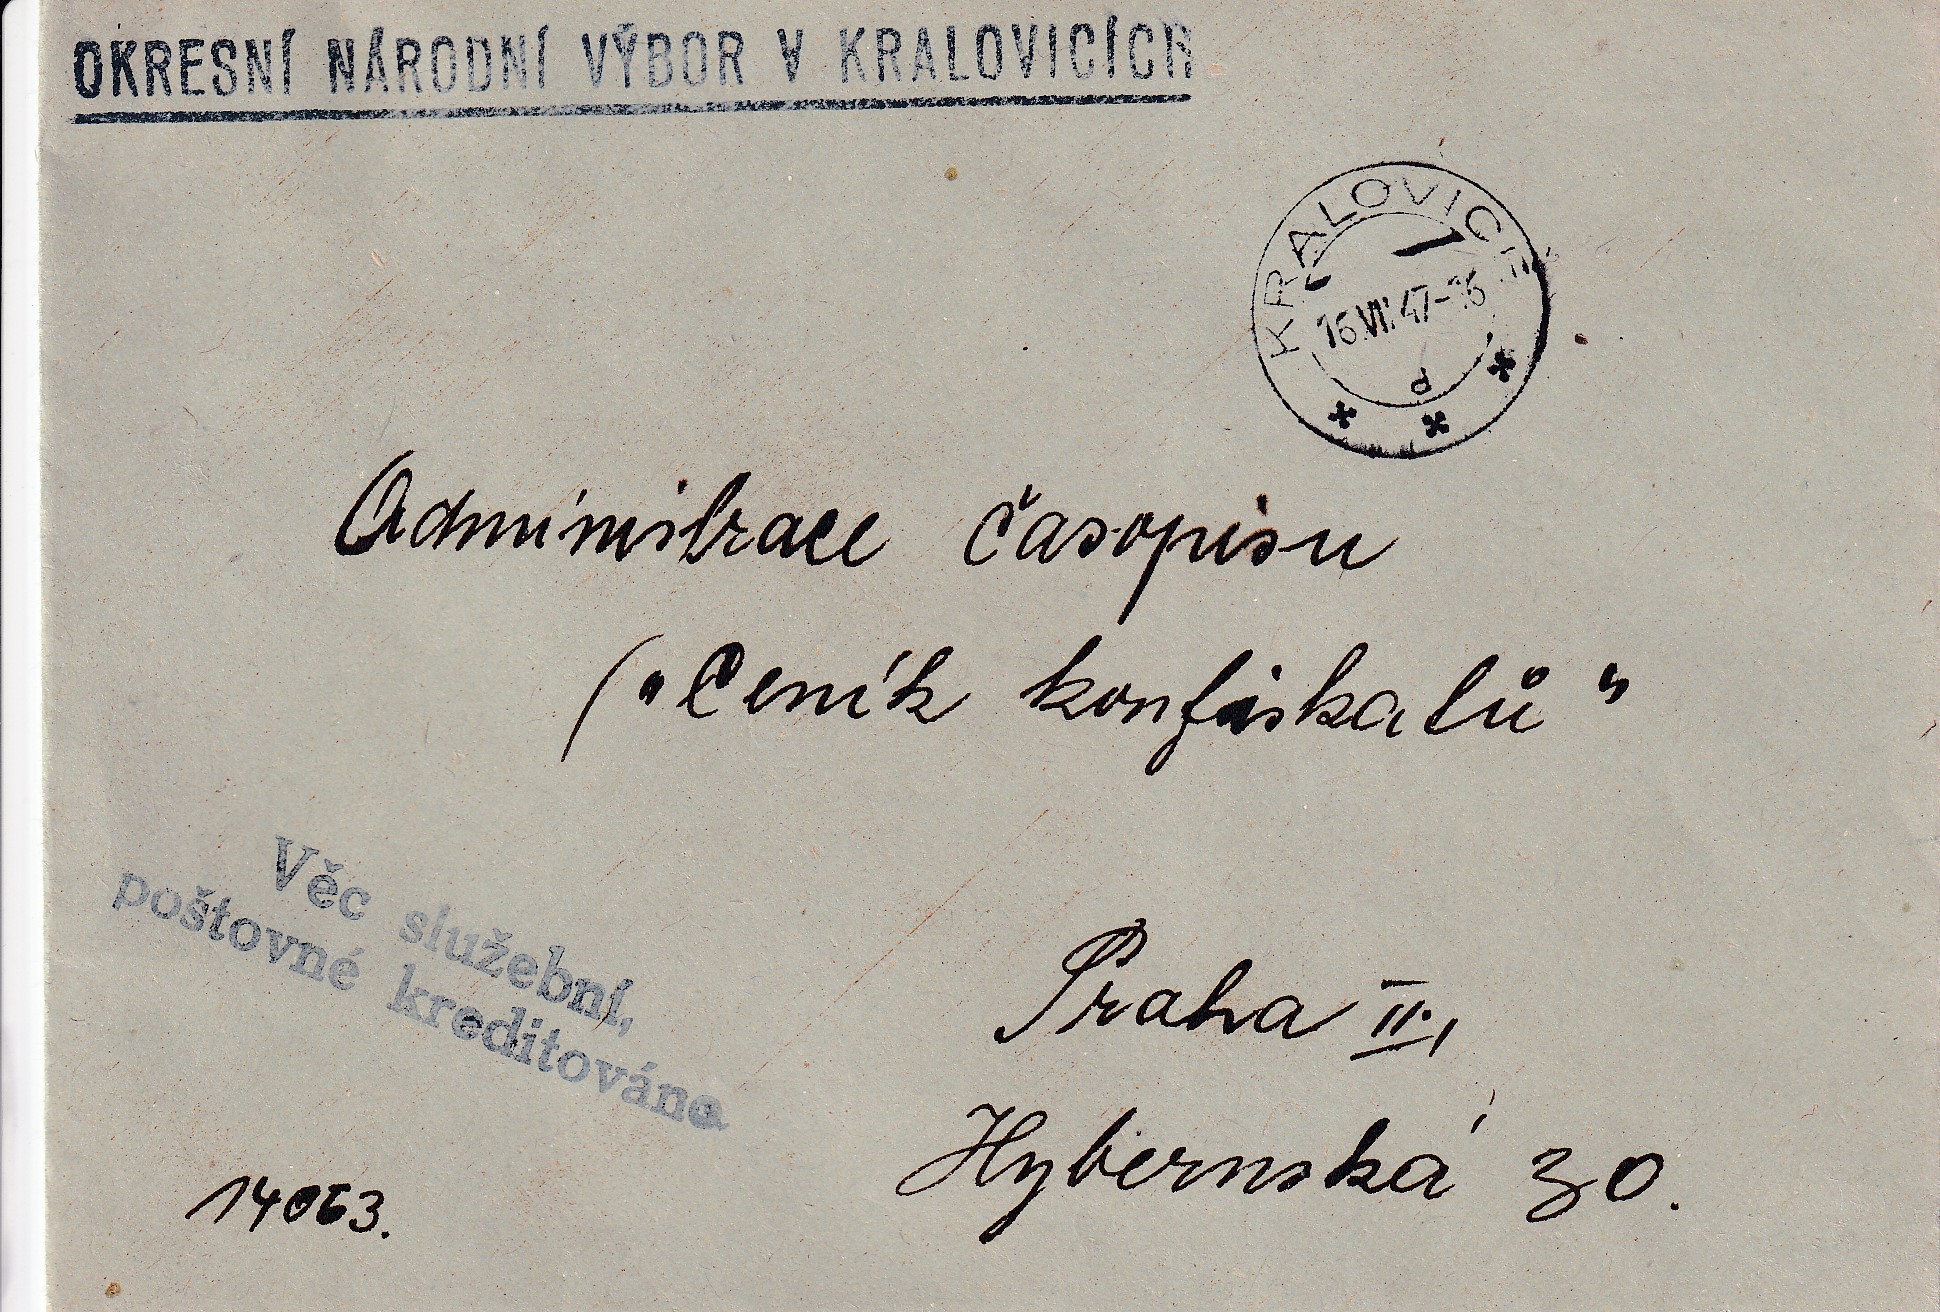 OKRESNÍ NÁRODNÍ VÝBOR V KRALOVICÍCH
KRALOVICE
16.VII.47-16
d
Administrace časopisu
("Ceník konfiskátů"
Věc služební,
poštovné kreditováno
Praha II.,
Hybernská 30.
14063.